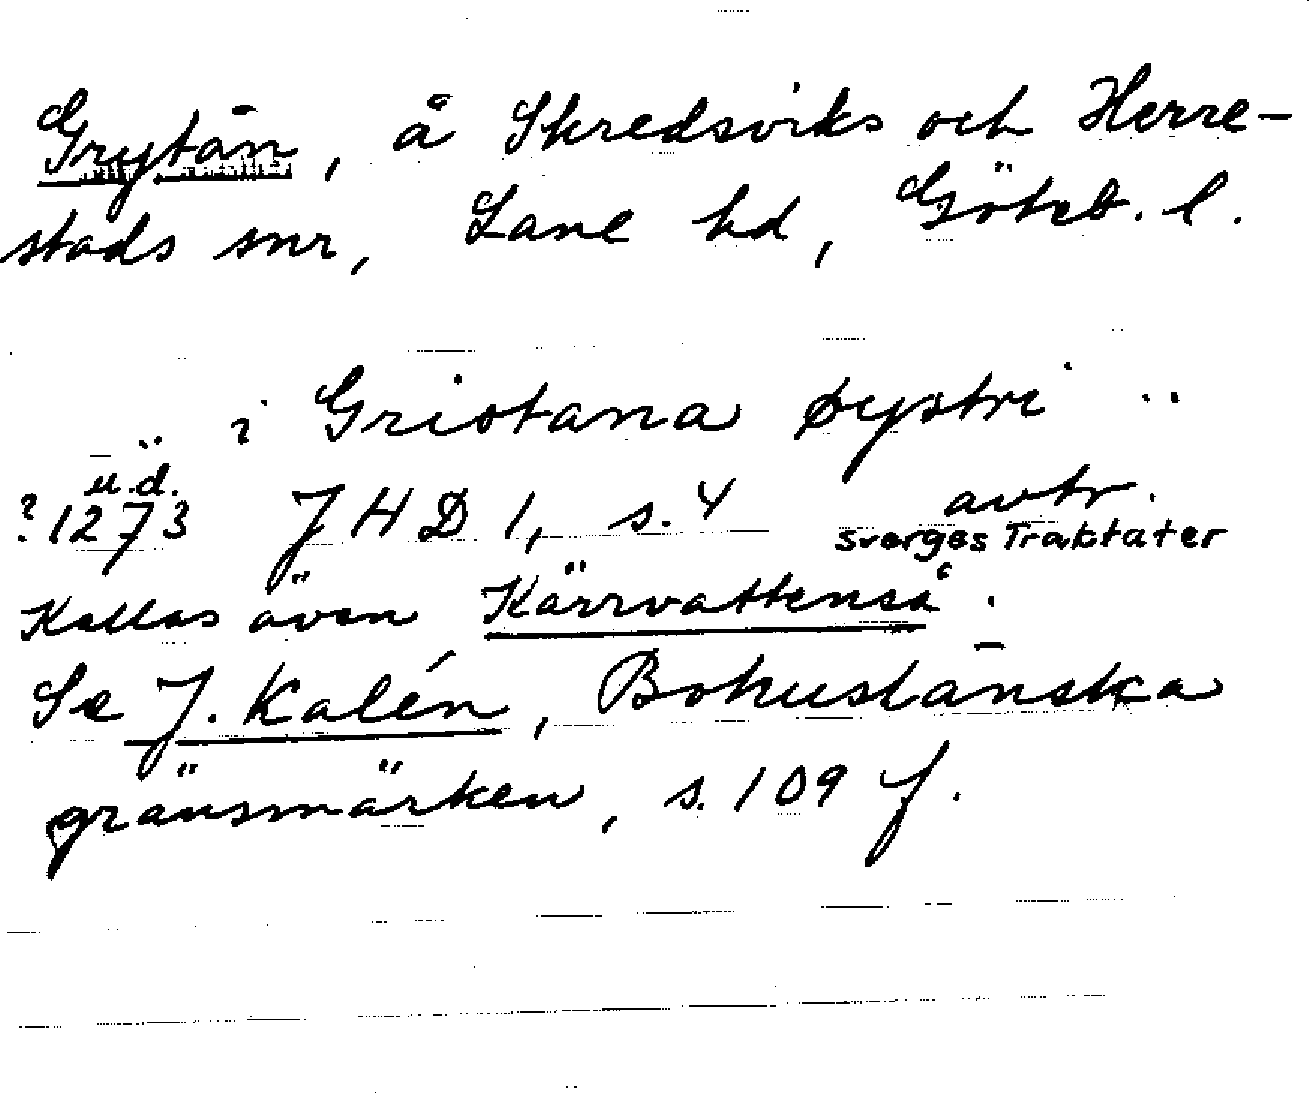 Grytån, å Skredsviks och Herre-
stads snr, Lane hd, Göteb. l.
.. i Gristana øystri ..
u.d.
?1273 JHD 1, s. 4 avtr.
Sverges Traktater
Kallas även Kärrvattenså.
Se J. Kalén, Bohuslänska
gränsmärken, s. 109 f.